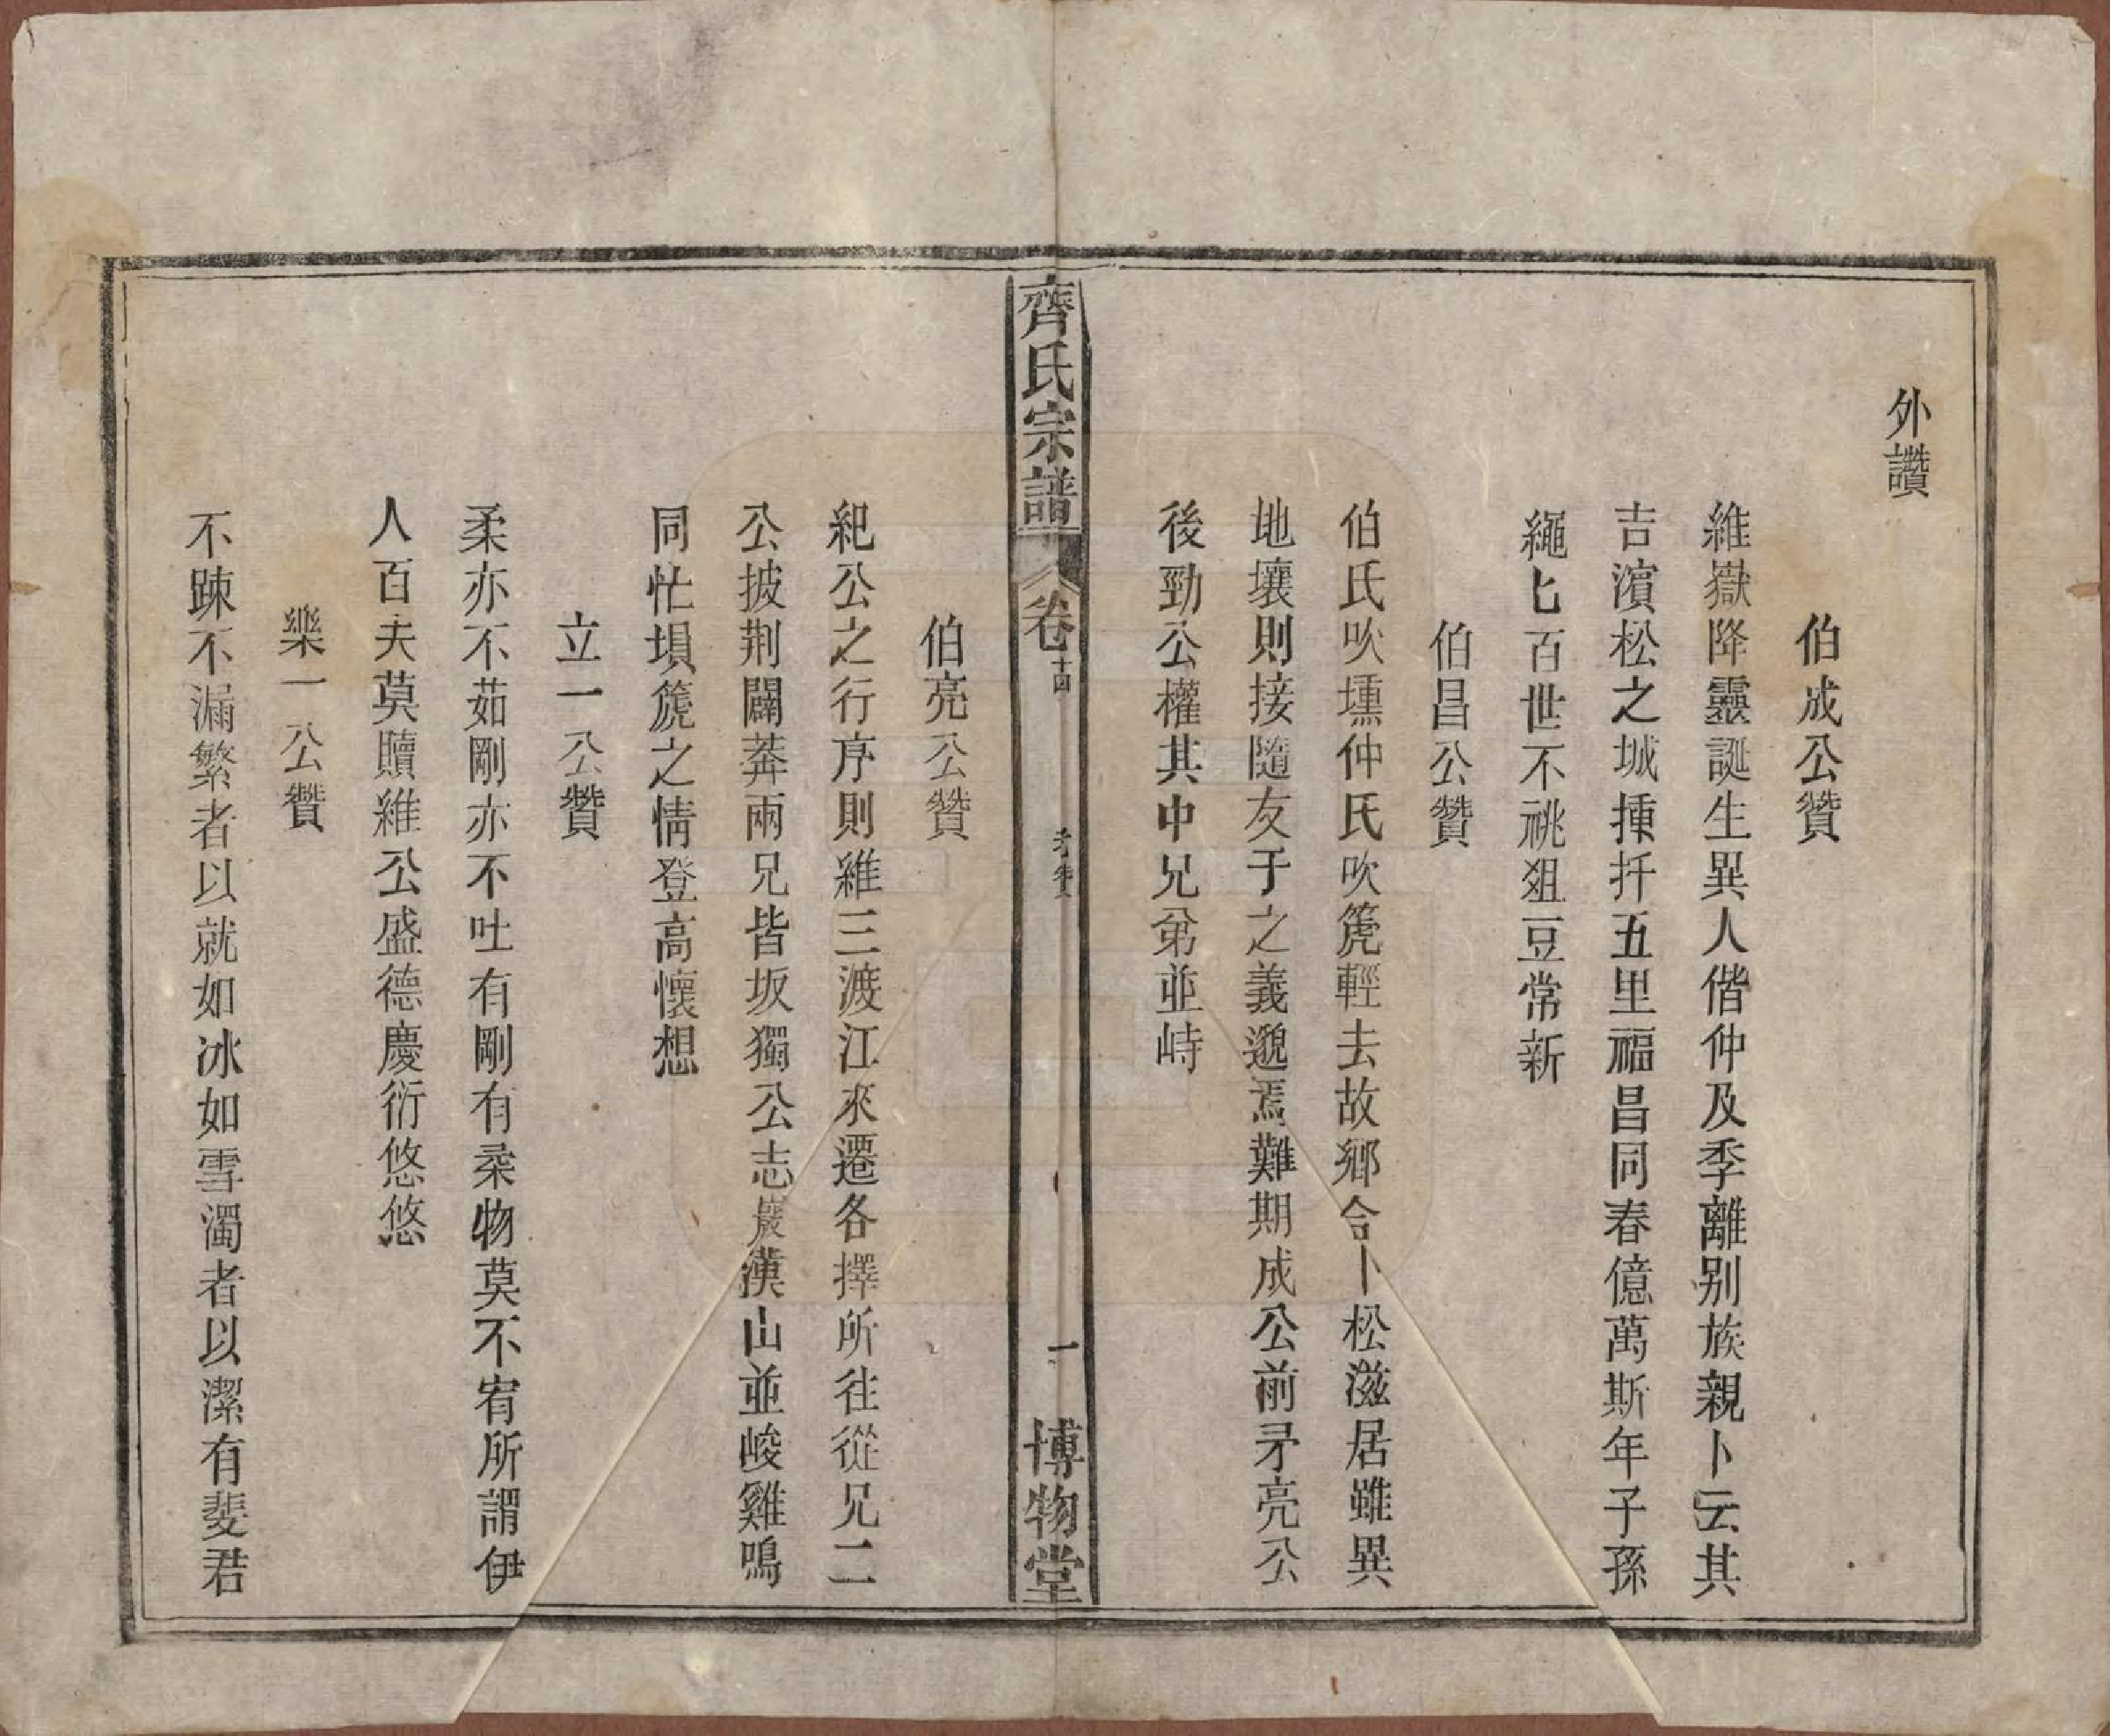 外讚
伯成公贊
維嶽降靈誕生異人偕仲及季離别族親卜云其
吉濱松之城揰扦五里福昌同春億萬斯年子孫
繩匕百世不祧俎豆常新
伯昌公贊
伯氏吹壎仲氏吹篪輕去故鄉合卜松滋居雖異
地壤則接隨友于之義邈焉難期成公前矛亮公
後勁公權其中兄弟並峙
齊氏宗譜
卷十四
一
博物堂
伯亮公贊
紀公之行序則維三渡江來遷各擇所往從兄二
公披荆闢莽兩兄皆坂獨公志巖漢山並峻雞鳴
同忙塤篪之情登高懷想
立一公贊
柔亦不茹剛亦不吐有剛有柔物莫不宥所謂伊
人百夫莫贖維公盛德慶衍悠悠
樂一公贊
不踈不漏繁者以就如冰如雪濁者以潔有斐君